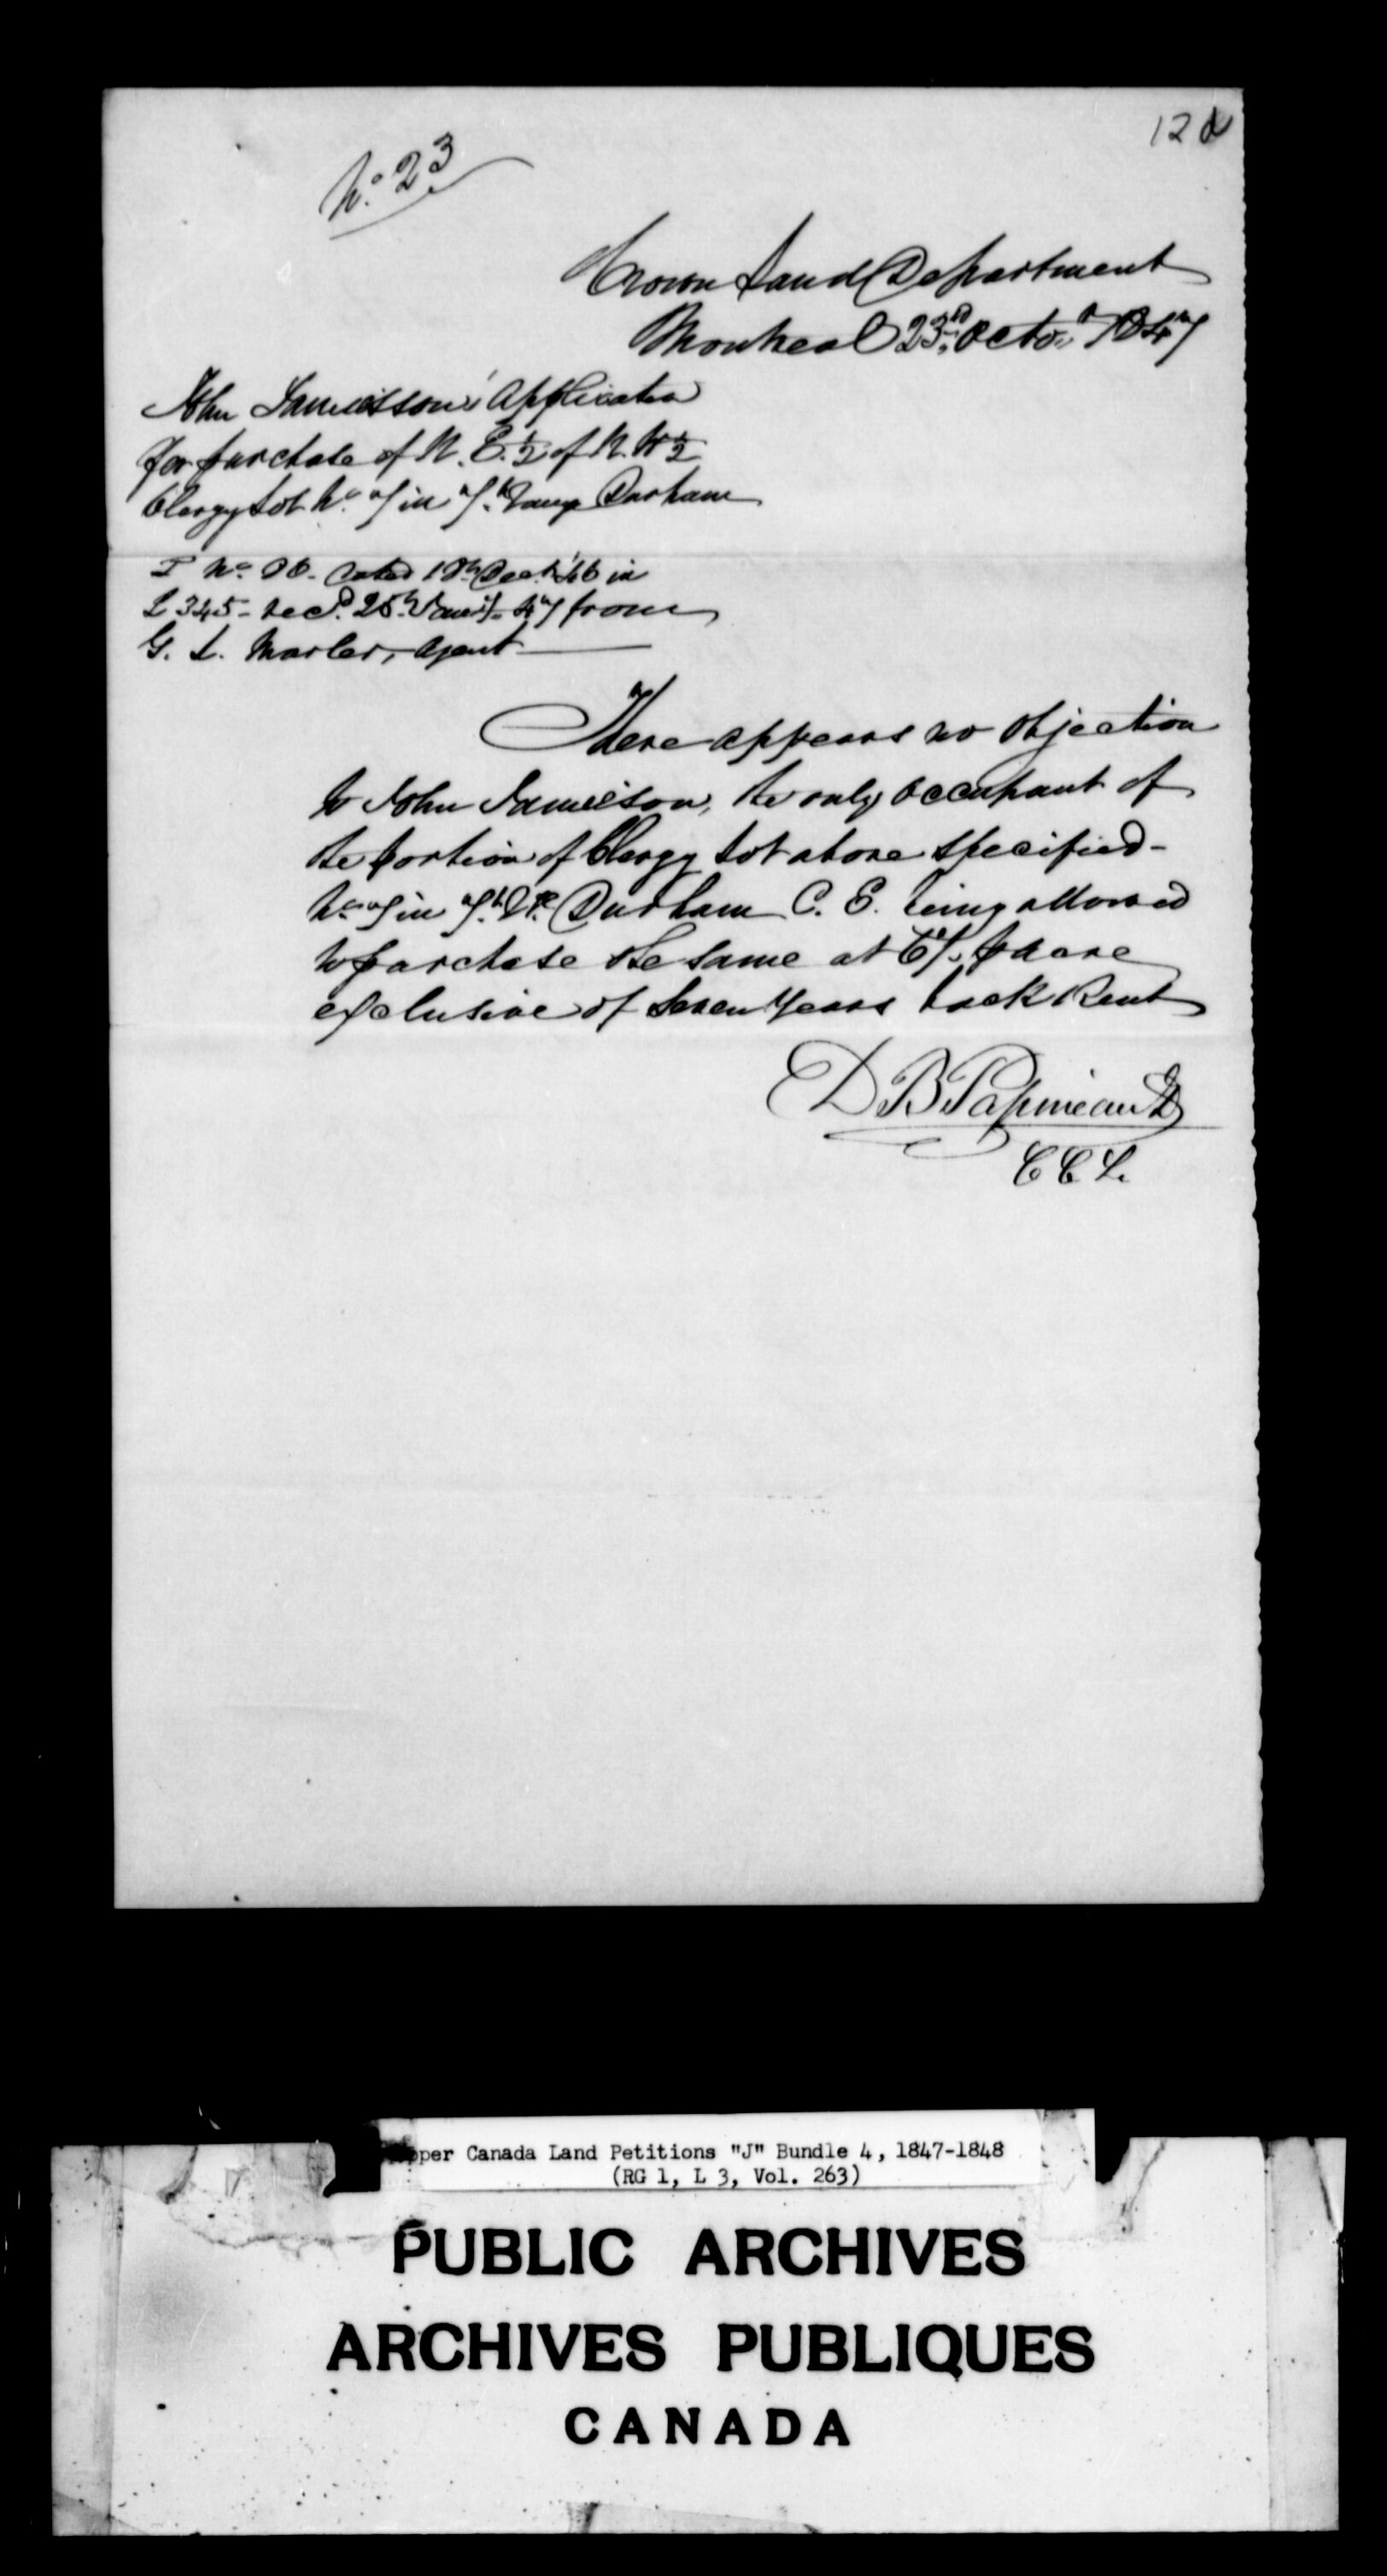 12 d
No. 23
Crown Land Department
Montreal 23d. Octo. 1847
John Jamiesson's Application
for purchase of N. E. ½ of N. W ½
Clergy Lot No. 7 in 7th. Range Durham
No. 96. dated 18th Dect. '46 in
L 345 - recd. 25th. Jany. 47 from
G. L. Marler, Agent
There appears no objection
to John Jamieson, the only occupant of
the portion of Clergy Lot above specified -
No. 7 in 7th. Re. Durham C. E. being allowed
to purchase the same at 6/. p acre
exclusive of Seven Years back Rent
D. B. Papineau
C C L.
pper Canada Land Petitions "J" Bundle 4, 1847-1848
(RG 1, L 3, Vol. 263)
PUBLIC ARCHIVES
ARCHIVES PUBLIQUES
CANADA